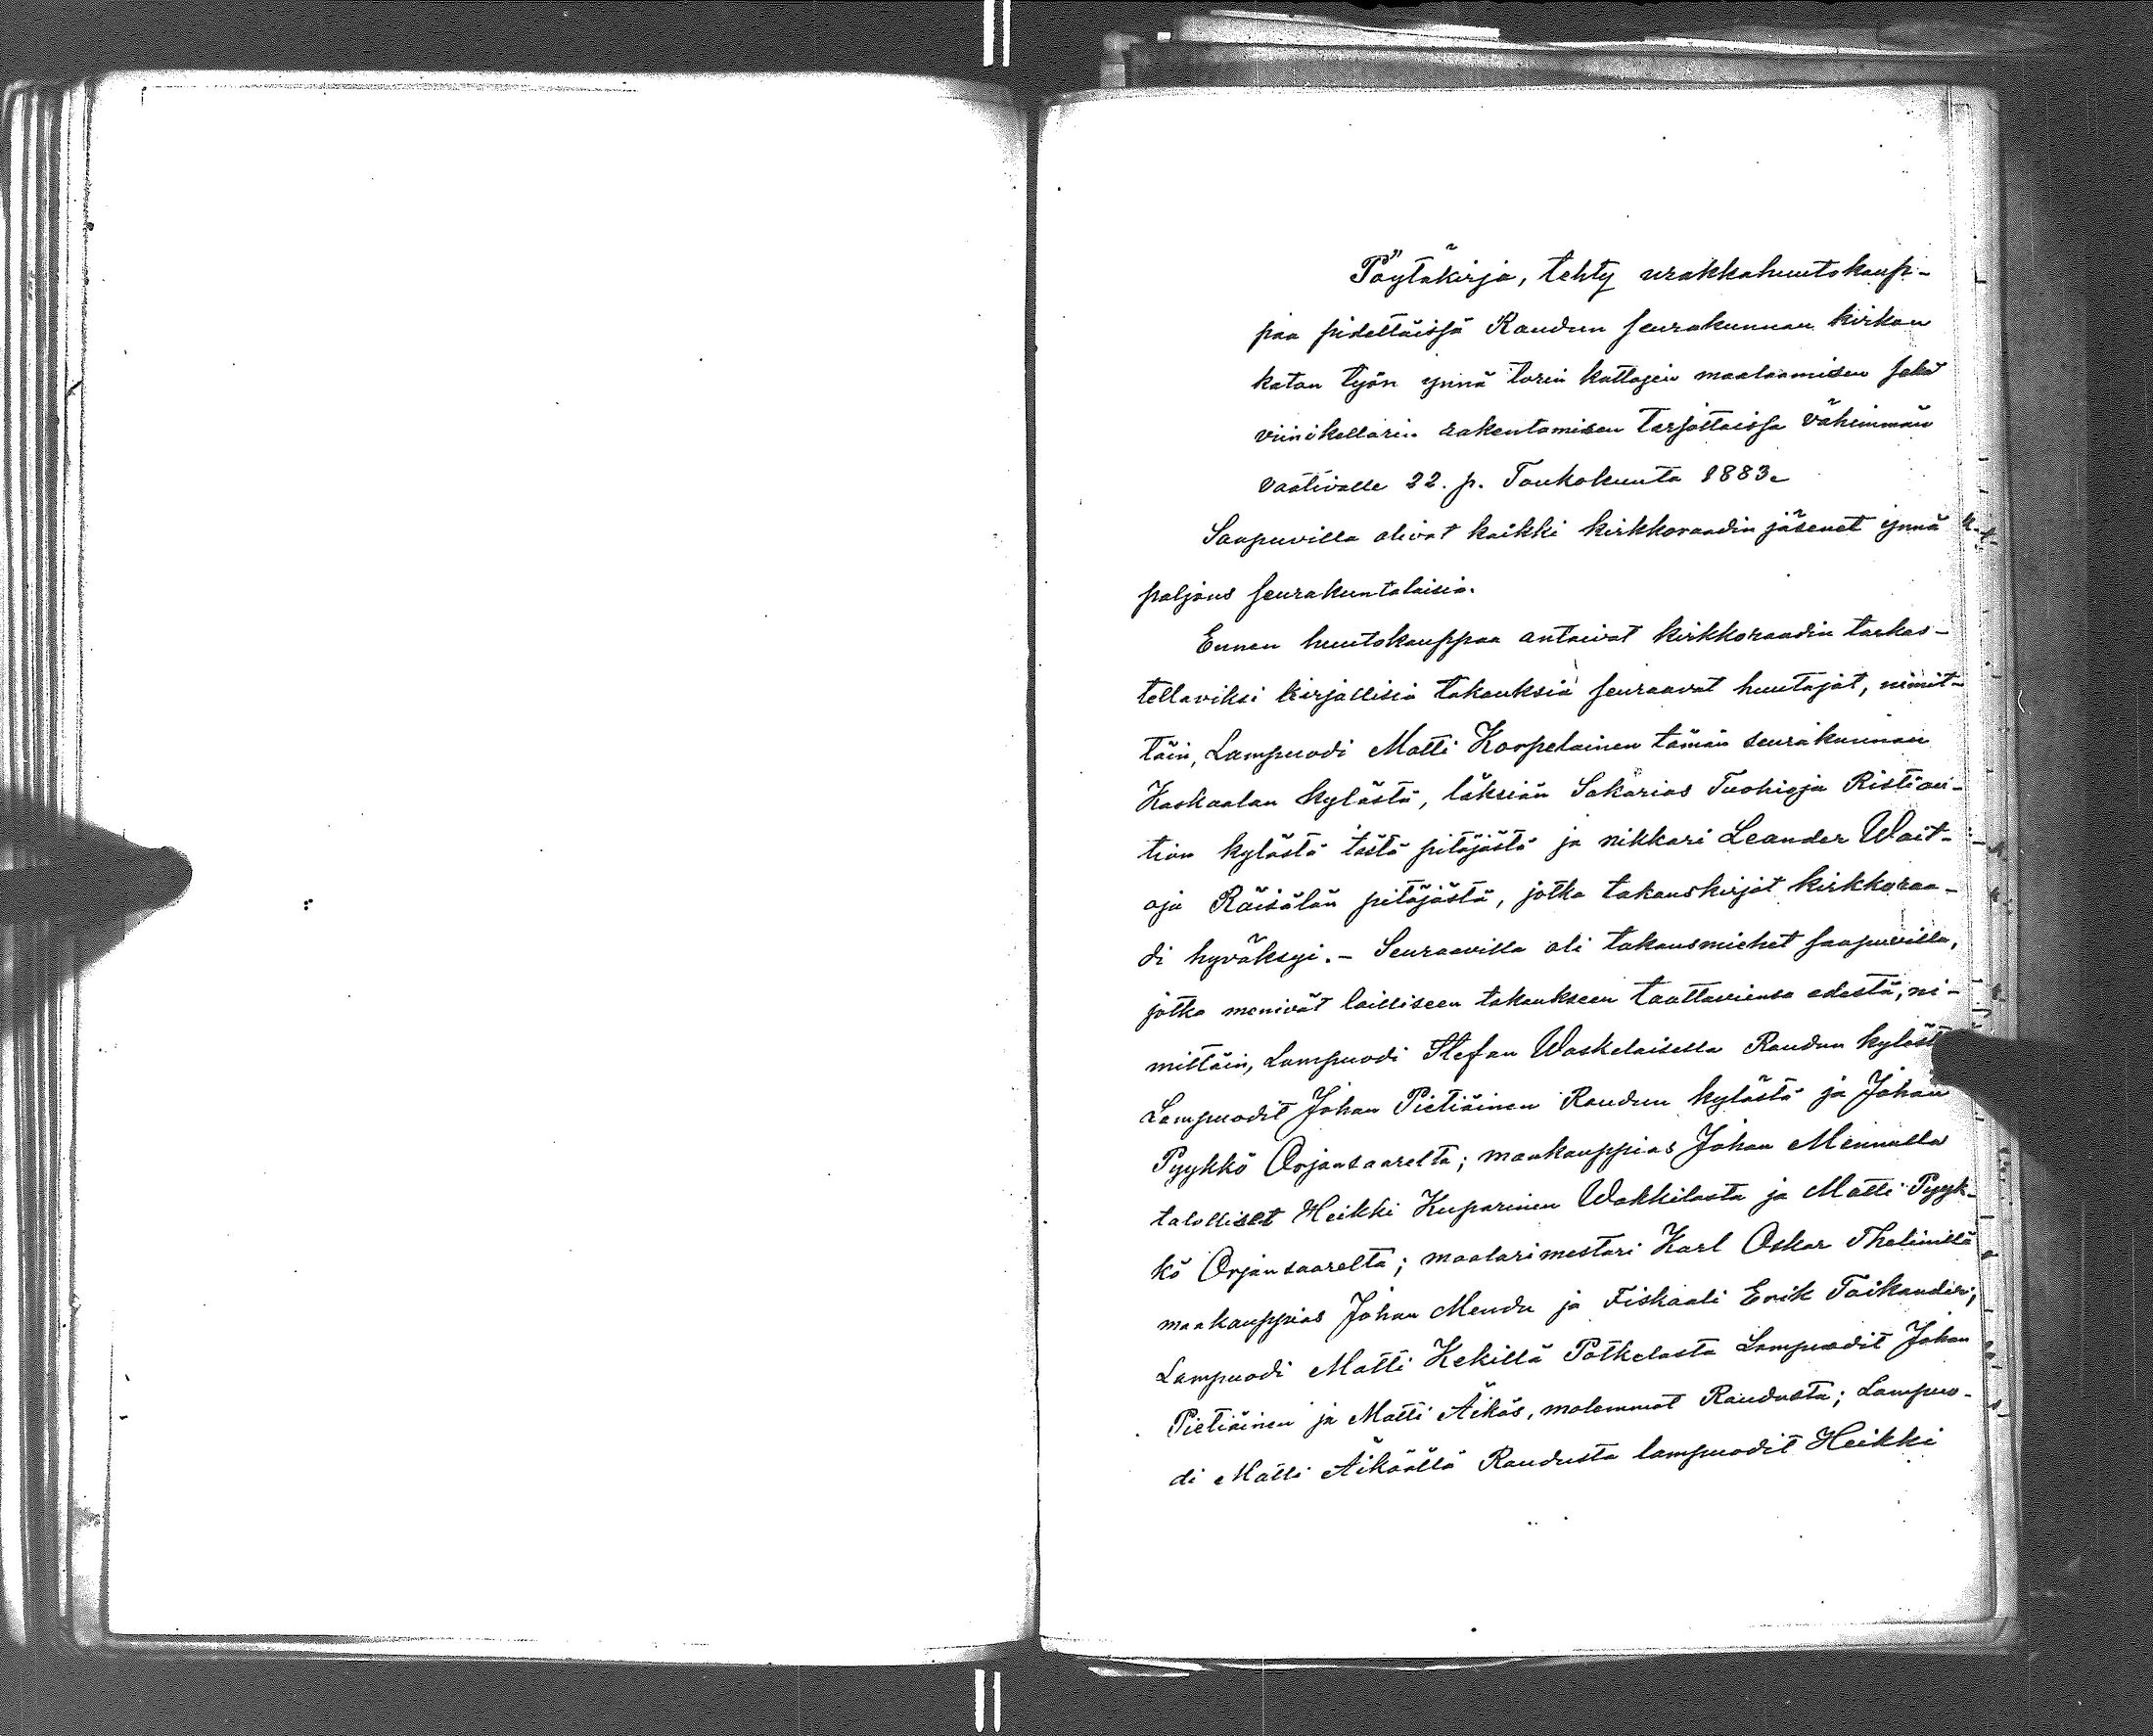 Pöytäkirja, tehty urakkahuutokaup-
paa pidettäissä Raudun seurakunnan kirkon
katon työn ynnä torin kattojen maalaamisen sekä
viinikellarin rakentamisen tarjottaissa vähimmän
vaativalle 22. p. Toukokuuta 1883.
Saapuvilla olivat kaikki kirkkoraadin jäsenet ynnä
paljous seurakuntalaisia.
Ennen huutokauppaa antaivat kirkkoraadin tarkas-
tellaviksi kirjallisia takauksia seuraavat huutajat, nimit-
täin, Lampuodi Matti Korpelainen tämän seurakunnan
Kaskaalan kylästä, läksiän Sakarias Tuohioja Ristiau-
tion kylästä tästä pitäjästä ja nikkari Leander Wait-
oja Räisälän pitäjästä, jotka takauskirjat kirkkoraa-
di hyväksyi. – Seuraavilla oli takausmiehet saapuvilla,
jotka menivät lailliseen takaukseen taattaviensa edestä, ni-
mittäin, Lampuodi Stefan Waskelaisella Raudun kylästä
Lampuodit Johan Pietiäinen Raudun kylästä ja Johan
Pyykkö Orjansaarelta; maakauppias Johan Mennulla
talolliset Heikki Kuparinen Wakkilasta ja Matti Pyyk-
kö Orjansaarelta; maalarimestari Karl Oskar Thelinillä
maakauppias Johan Mendu ja Fiskaali Erik Toikander;
Lampuodi Matti Kekillä Potkelasta Lampuodit Johan
Pietiäinen ja Matti Äikäs, molemmat Raudusta; Lampuo-
di Matti Äikäällä Raudusta lampuodit Heikki